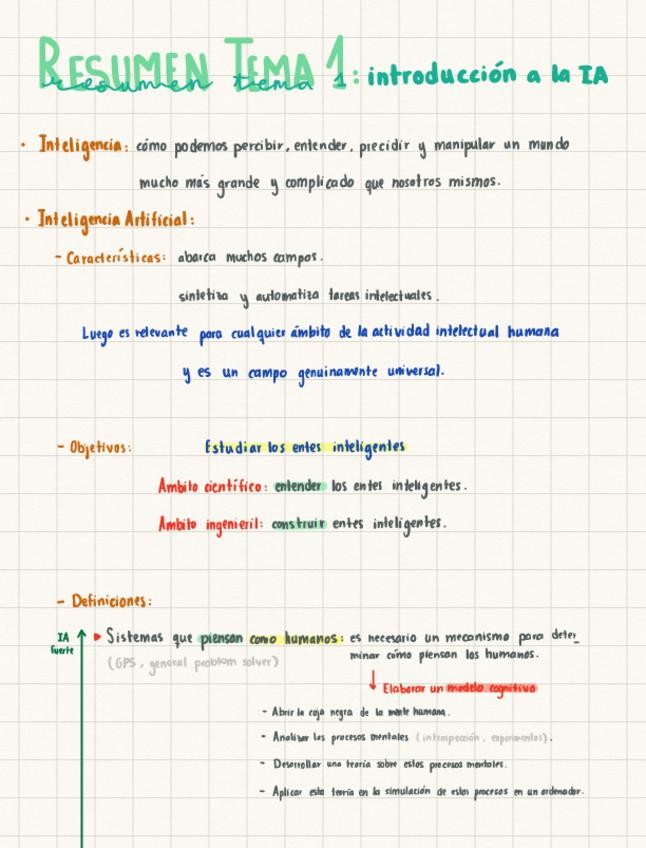 RESUMEN TEMA 1: introducción a la IA
resumen tema 1
· Inteligencia: cómo podemos percibir, entender, precidir y manipular un mundo
mucho más grande y complicado que nosotros mismos.
· Inteligencia Artificial:
- Características: abarca muchos campos.
sintetiza y automatiza tareas intelectuales.
Luego es relevante para cualquier ámbito de la actividad intelectual humana
y es un campo genuinamente universal.
- Objetivos: Estudiar los entes inteligentes
Ámbito científico: entender los entes inteligentes.
Ámbito ingenieril: construir entes inteligentes.
- Definiciones:
IA fuerte
▸ Sistemas que piensan como humanos: es necesario un mecanismo para deter_
(GPS, general problem solver) minar cómo piensan los humanos.
↓ Elaborar un modelo cognitivo
- Abrir la caja negra de la mente humana.
- Analizar los procesos mentales (introspección, experimentos).
- Desarrollar una teoría sobre estos procesos mentales.
- Aplicar esta teoría en la simulación de estos procesos en un ordenador.